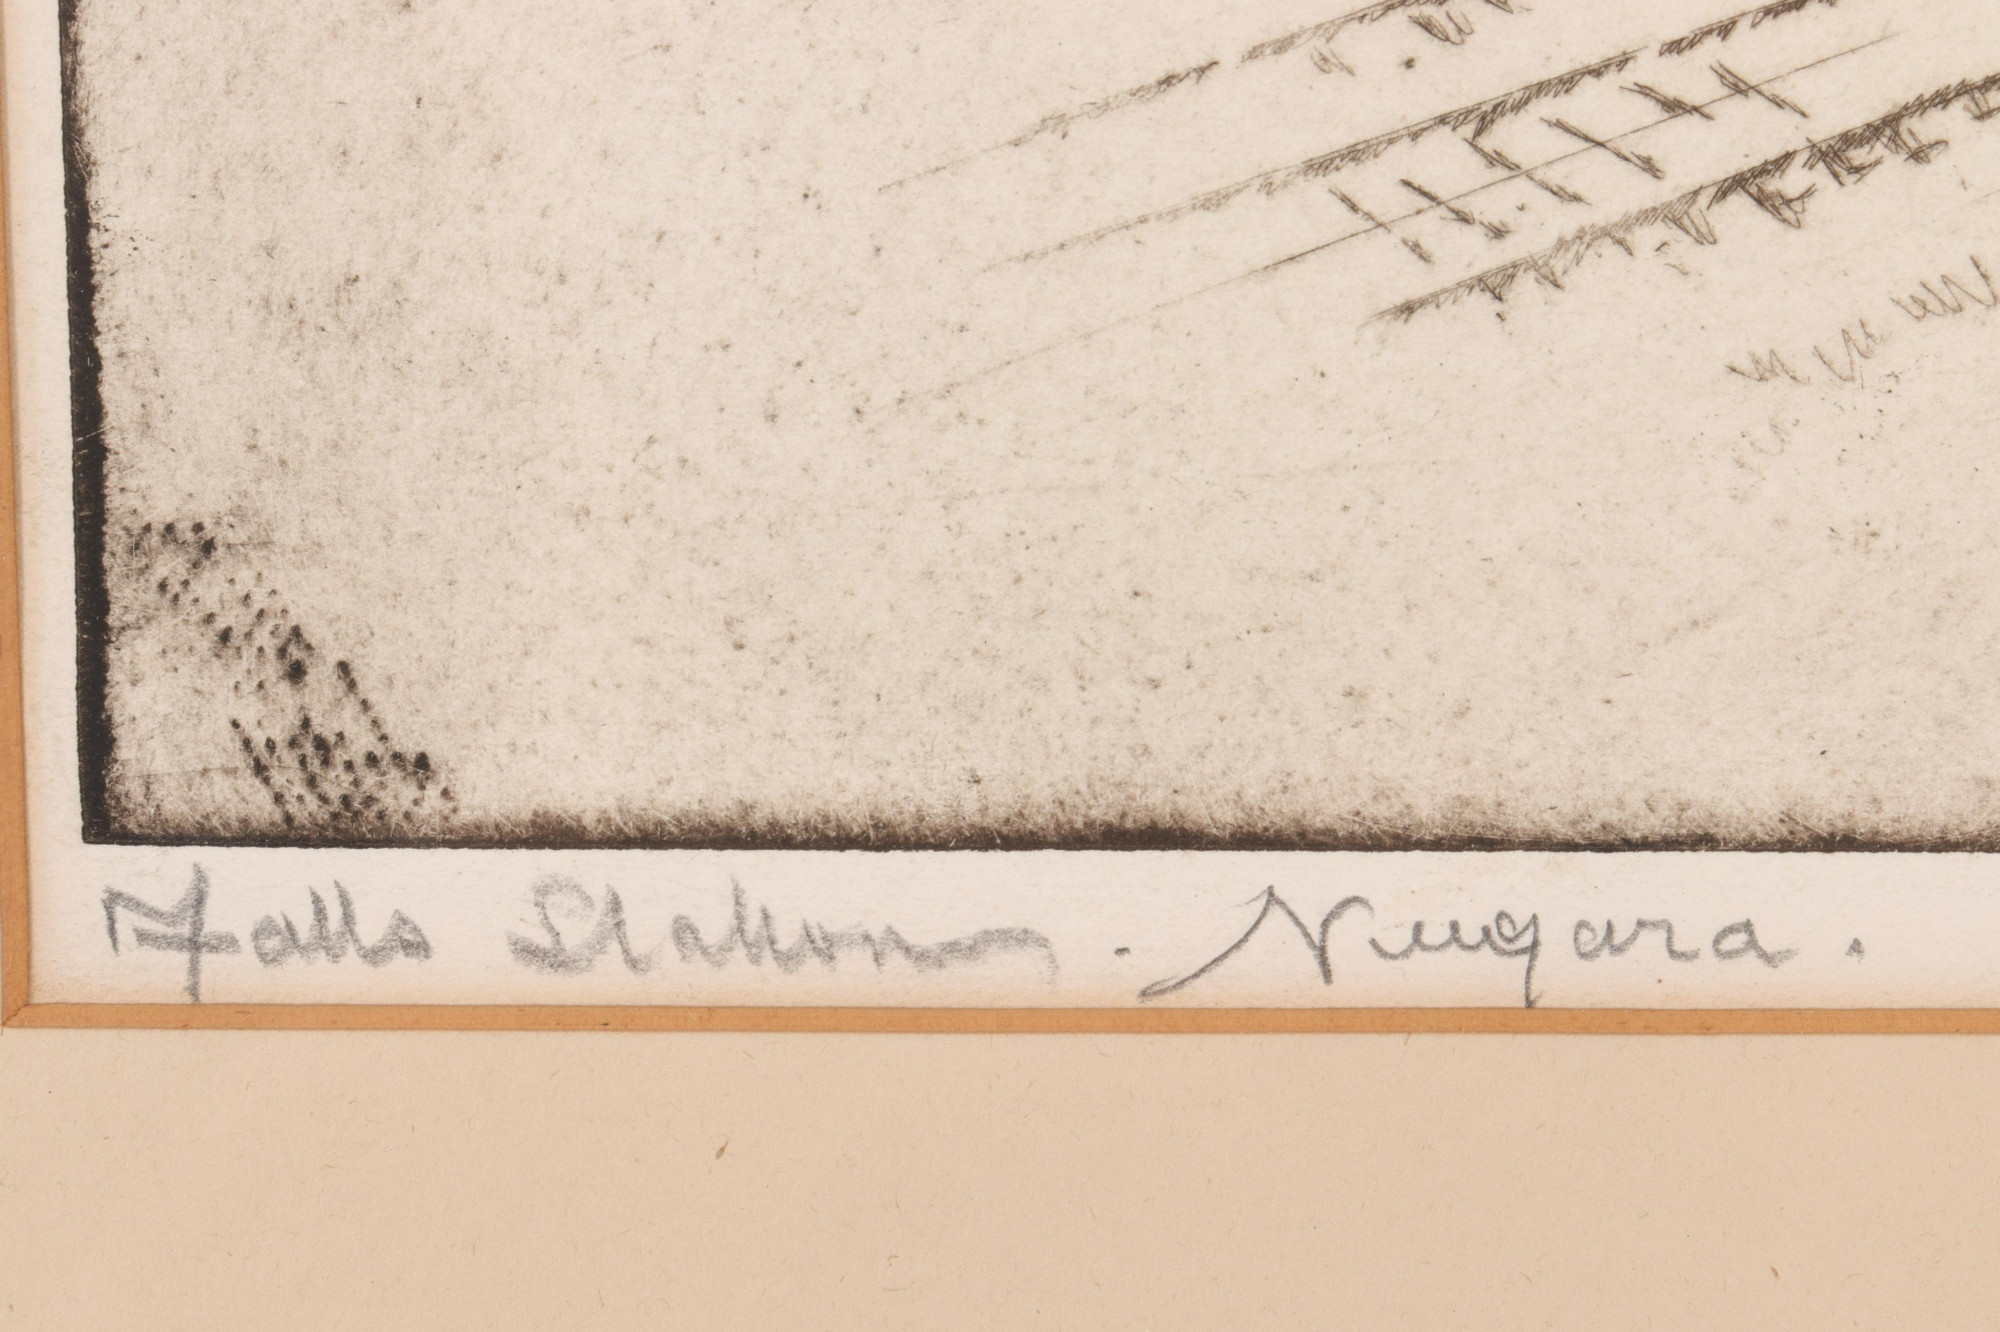 Falls Station. Niagara.